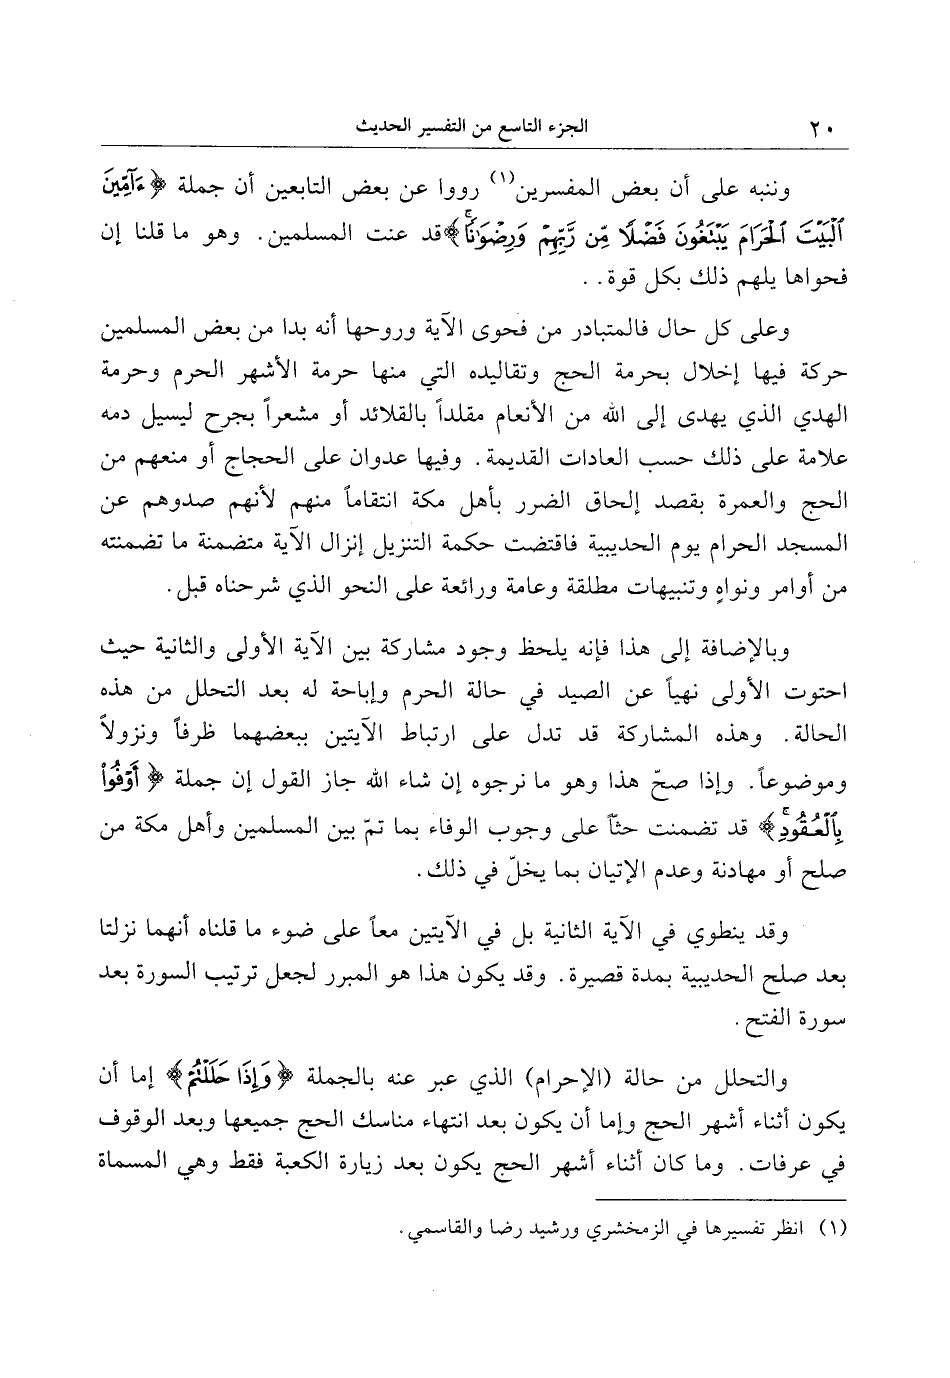 ٢٠ الجزء التاسع من التفسير الحديث
وننبه على أن بعض المفسرين(١) رووا عن بعض التابعين أن جملة ﴿ءَآمِّينَ
ٱلْبَيْتَ ٱلْحَرَامَ يَبْتَغُونَ فَضْلًا مِّن رَّبِّهِمْ وَرِضْوَٰنًاۚ﴾ قد عنت المسلمين. وهو ما قلنا إن
فحواها يلهم ذلك بكل قوة. .
وعلى كل حال فالمتبادر من فحوى الآية وروحها أنه بدا من بعض المسلمين
حركة فيها إخلال بحرمة الحج وتقاليده التي منها حرمة الأشهر الحرم وحرمة
الهدي الذي يهدى إلى الله من الأنعام مقلداً بالقلائد أو مشعراً بجرح ليسيل دمه
علامة على ذلك حسب العادات القديمة. وفيها عدوان على الحجاج أو منعهم من
الحج والعمرة بقصد إلحاق الضرر بأهل مكة انتقاماً منهم لأنهم صدوهم عن
المسجد الحرام يوم الحديبية فاقتضت حكمة التنزيل إنزال الآية متضمنة ما تضمنته
من أوامر ونواهٍ وتنبيهات مطلقة وعامة ورائعة على النحو الذي شرحناه قبل.
وبالإضافة إلى هذا فإنه يلحظ وجود مشاركة بين الآية الأولى والثانية حيث
احتوت الأولى نهياً عن الصيد في حالة الحرم وإباحة له بعد التحلل من هذه
الحالة. وهذه المشاركة قد تدل على ارتباط الآيتين ببعضهما ظرفاً ونزولاً
وموضوعاً. وإذا صحّ هذا وهو ما نرجوه إن شاء الله جاز القول إن جملة ﴿أَوْفُوا۟
بِٱلْعُقُودِۚ﴾ قد تضمنت حثّاً على وجوب الوفاء بما تمّ بين المسلمين وأهل مكة من
صلح أو مهادنة وعدم الإتيان بما يخلّ في ذلك.
وقد ينطوي في الآية الثانية بل في الآيتين معاً على ضوء ما قلناه أنهما نزلتا
بعد صلح الحديبية بمدة قصيرة. وقد يكون هذا هو المبرر لجعل ترتيب السورة بعد
سورة الفتح.
والتحلل من حالة (الإحرام) الذي عبر عنه بالجملة ﴿وَإِذَا حَلَلْتُمْ﴾ إما أن
يكون أثناء أشهر الحج وإما أن يكون بعد انتهاء مناسك الحج جميعها وبعد الوقوف
في عرفات. وما كان أثناء أشهر الحج يكون بعد زيارة الكعبة فقط وهي المسماة
(١) انظر تفسيرها في الزمخشري ورشيد رضا والقاسمي.